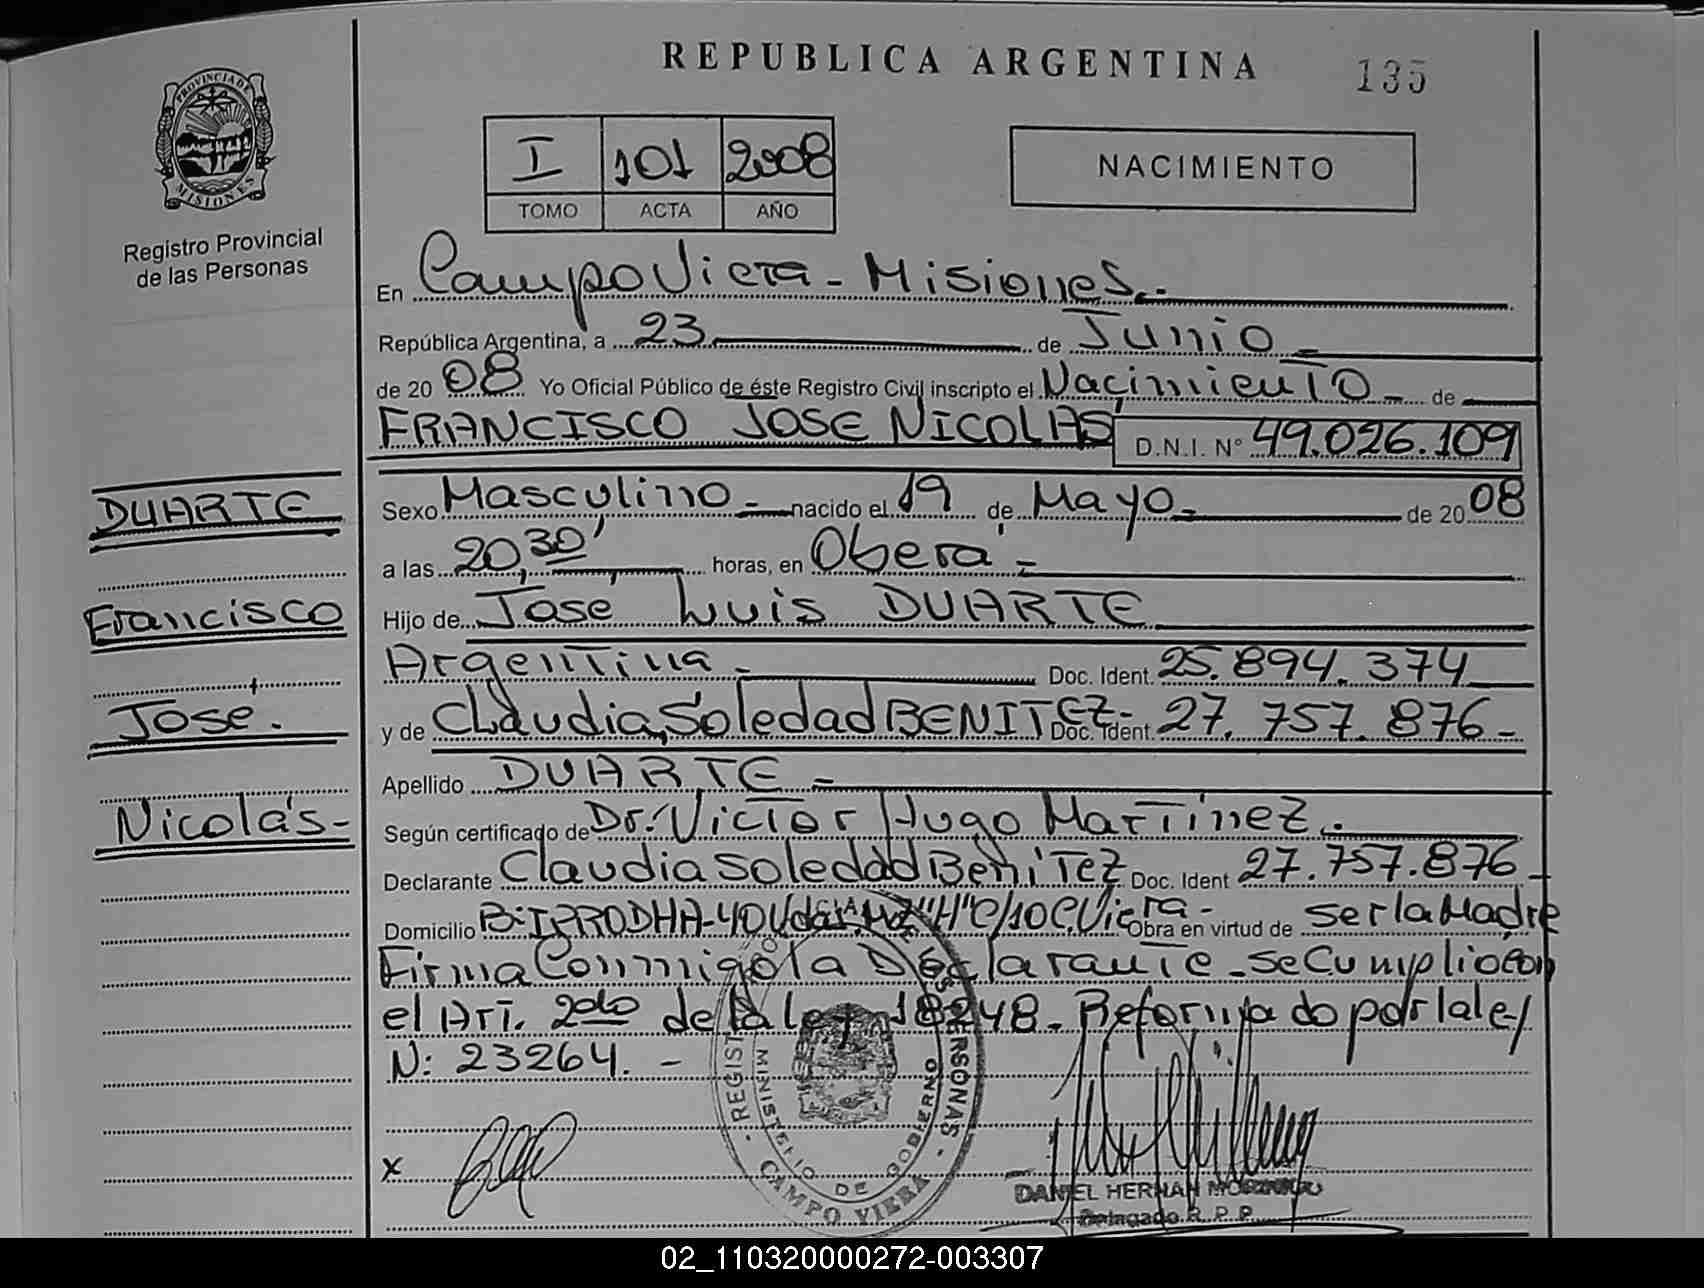 REPUBLICA ARGENTINA
135
PROVINCIA DE MISIONES
Registro Provincial
de las Personas
I 101 2008
TOMO ACTA AÑO
NACIMIENTO
En Campo Viera - Misiones.-
República Argentina, a 23 de Junio -
de 2008 Yo Oficial Público de éste Registro Civil inscripto el Nacimiento - de
FRANCISCO JOSE NICOLAS D.N.I. N° 49.026.109
DUARTE
Francisco
Jose.
Nicolás-
Sexo Masculino - nacido el 19 de Mayo - de 2008
a las 20,30' horas, en Obera' -
Hijo de Jose Luis DUARTE
Argentina - Doc. Ident. 25.894.374
y de Claudia Soledad BENITEZ- Doc. Ident. 27.757.876-
Apellido DUARTE -
Según certificado de Dr. Victor Hugo Martinez.
Declarante Claudia Soledad Benitez Doc. Ident 27.757.876-
Domicilio B: IPRODHA-40 Vdas. Mz "H" C/10 C. Viera - Obra en virtud de ser la Madre
Firma Conmigo la Declarante - se Cumplio con
el Art. 2do de la ley 18248 - Reformado por la ley
N: 23264. -
REGISTRO DE LAS PERSONAS - CAMPO VIERA -
MINISTERIO DE GOBIERNO
x
DANIEL HERNAN
Delegado R. P. P.
02_110320000272-003307